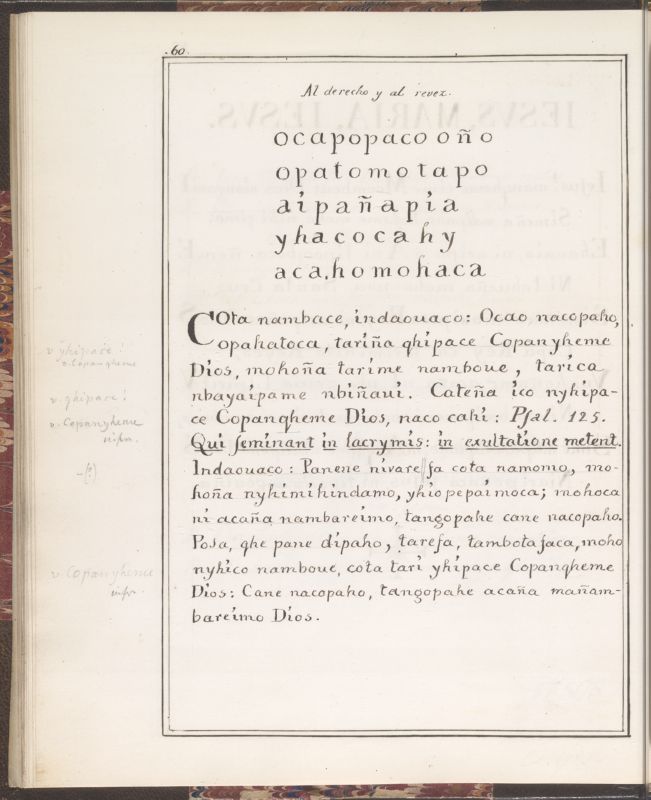 .60.
Al derecho y al revez.
ocapopaco oño
opatomotapo
aipañapia
yhacocahy
aca,homohaca
COta nambace, indaouaco: Ocao nacopaho,
opahatoca, tariña qhipace Copanyheme
Dios, mohoña tarime namboue, tarica
nbayaipame nbiñaui. Cateña ico nyhipa-
ce Copanqheme Dios, naco cahi: Pſal. 125.
Qui ſeminant in lacrymis: in exultatione metent.
Indaouaco: Panene nivare//ſa cota namomo, mo-
hoña nyhimihindamo, yhiopepaimoca; mohoca
ni acaña nambareimo, tangopahe cane nacopaho.
Poſa, qhe pane dipaho, tareſa, tambotaſaca, moho
nyhico namboue, cota tari yhipace Copanqheme
Dios: Cane nacopaho, tangopahe acaña mañam-
bareimo Dios.
v. yhipace!
v. Copanqheme
v. qhipace!
v. Copanyheme
infr.
-(?)
v. Copanyheme
infr.